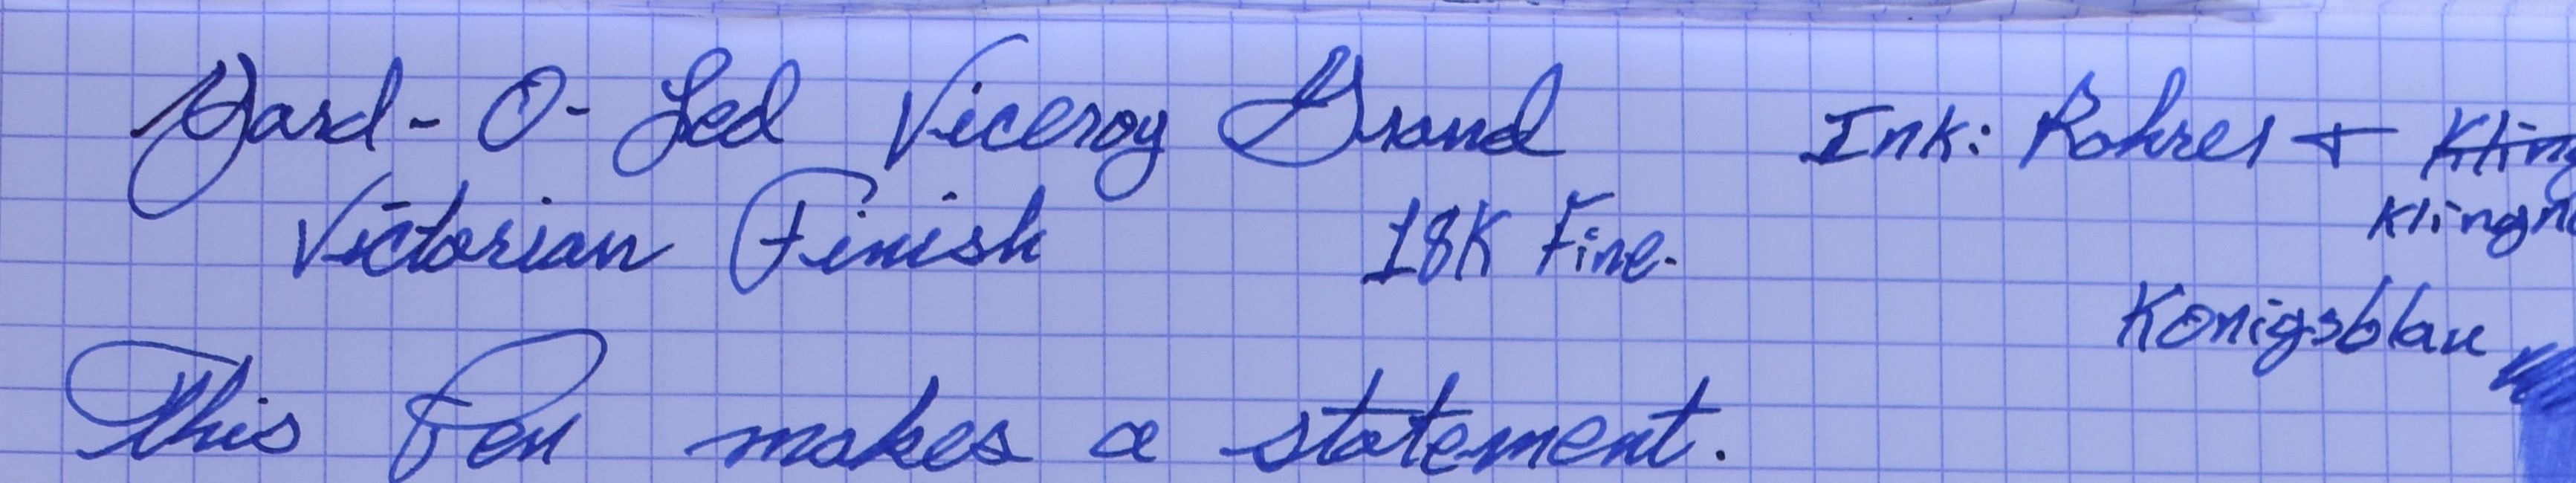 Yard-O-Led Viceroy Grand Ink: Rohrer +
Victorian Finish 18K Fine.
Konigsblau
This Pen makes a statement.